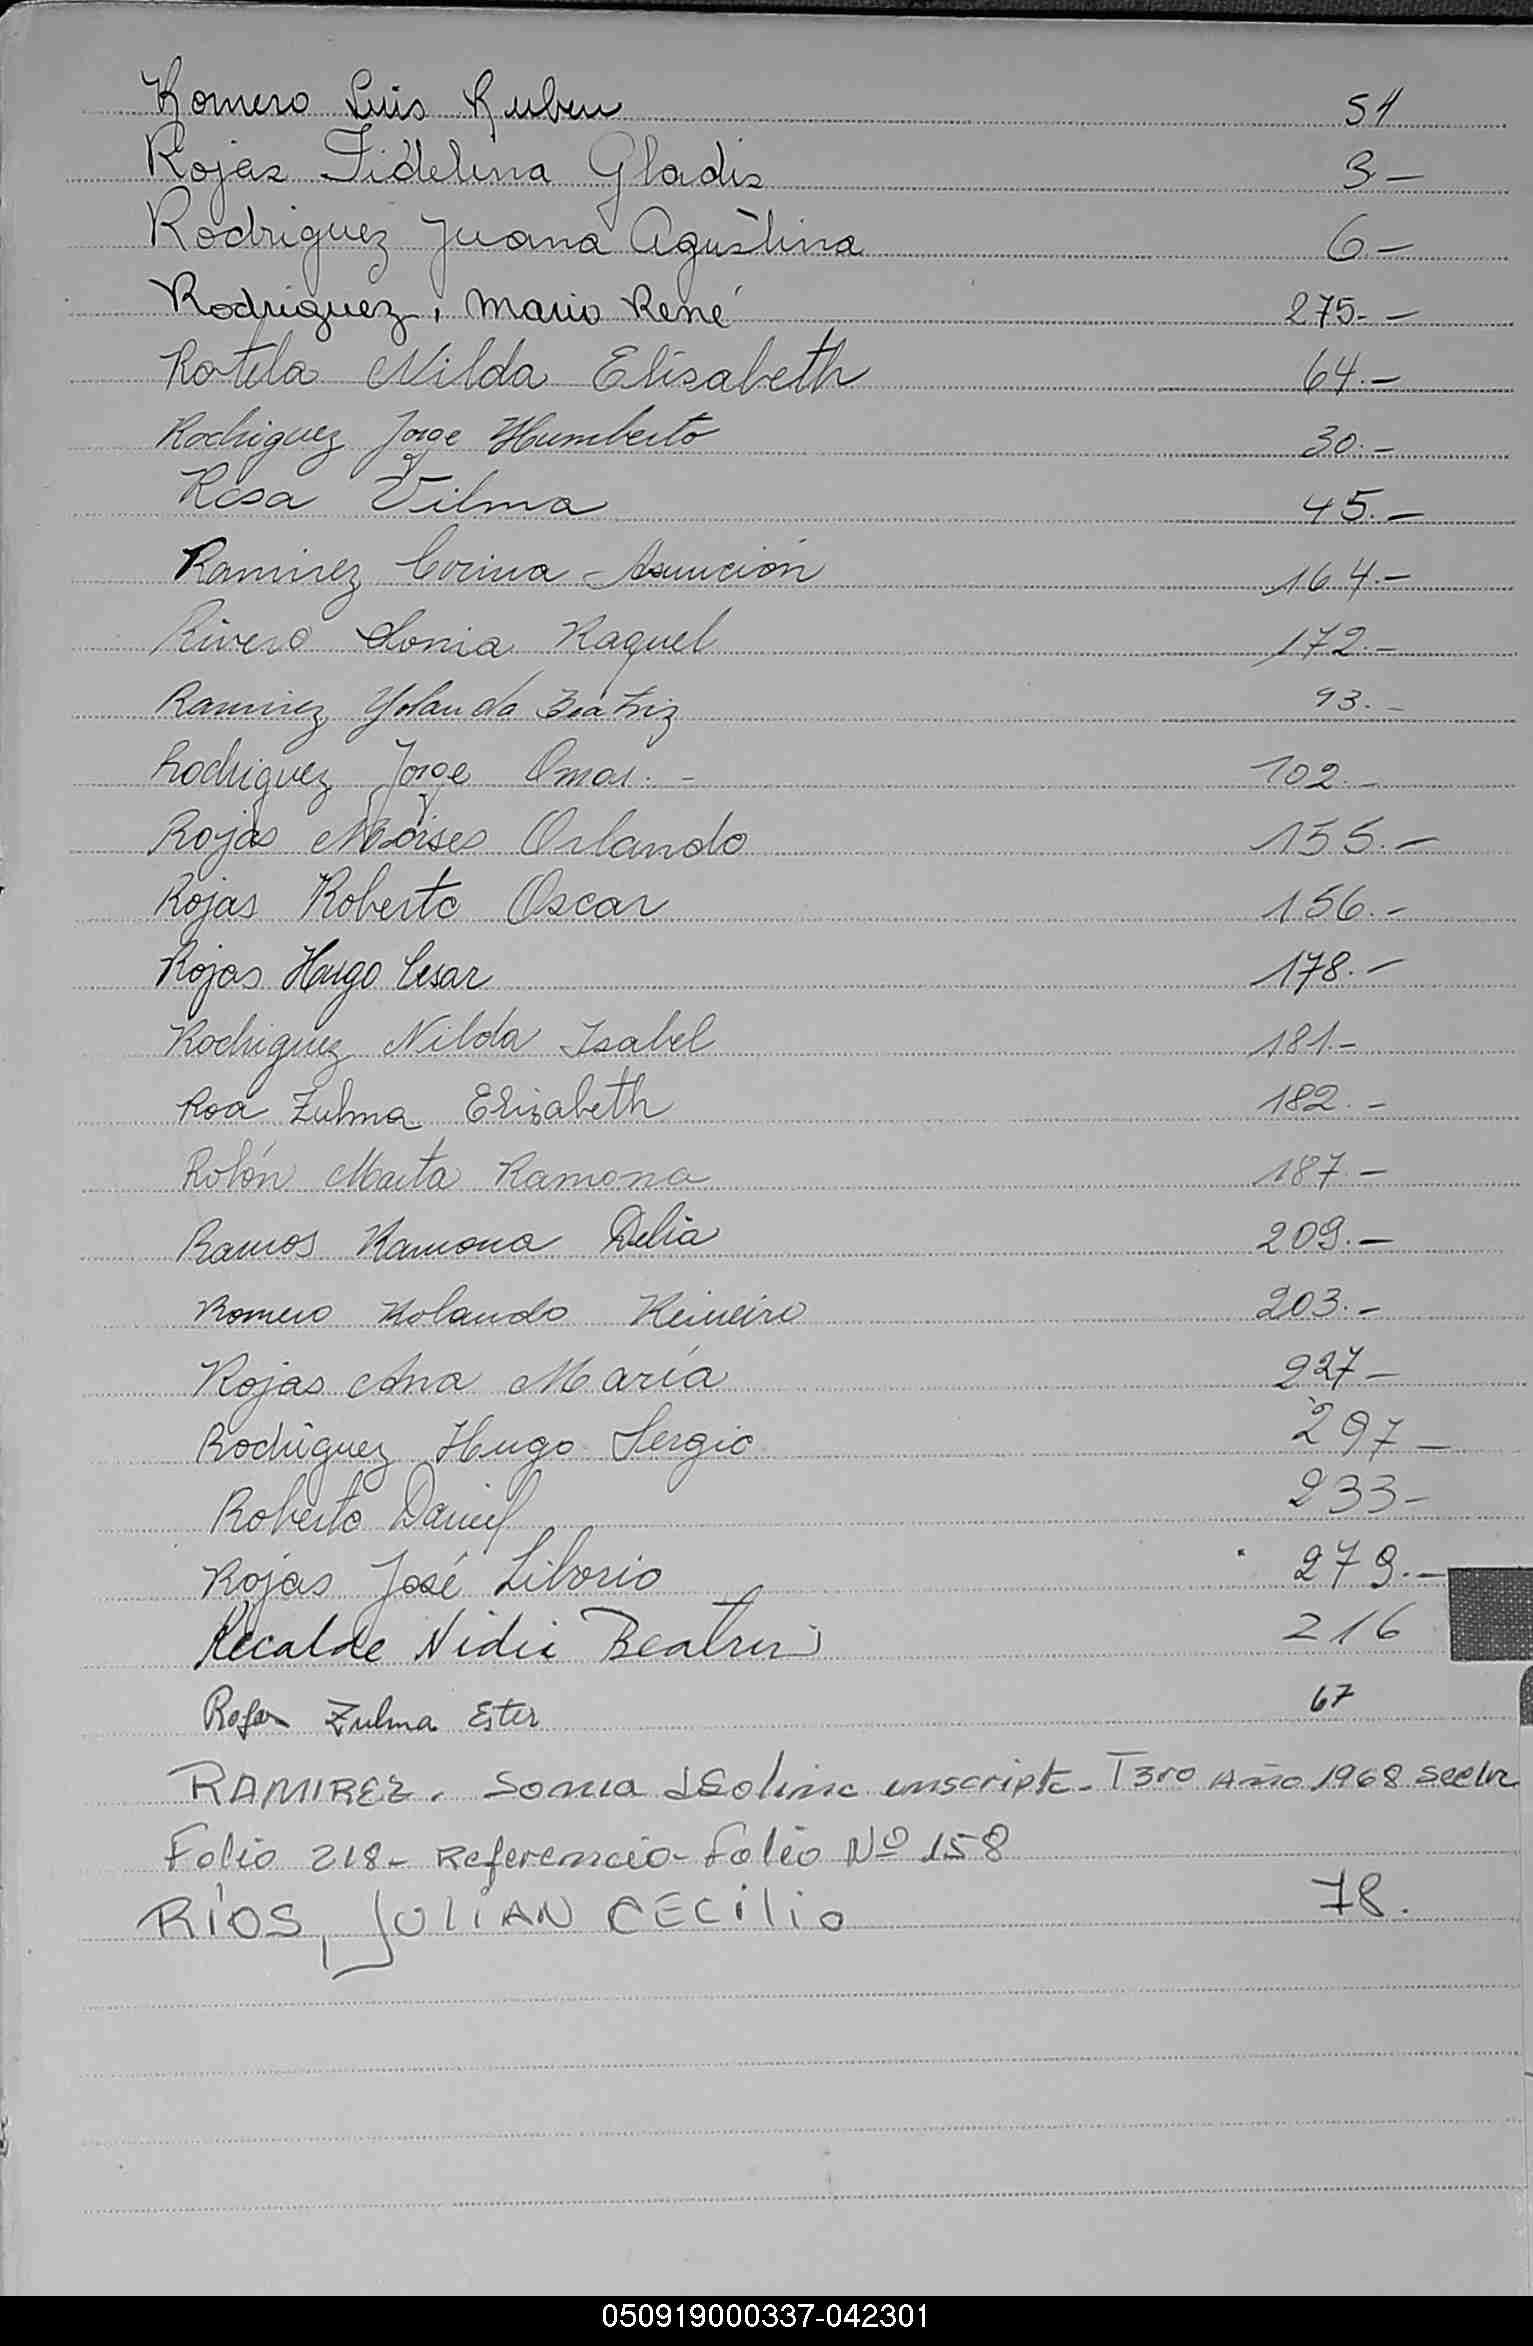 Romero Luis Ruben 54
Rojas Fidelina Gladis 3-
Rodriguez Juana Agustina 6-
Rodriguez, Mario René 275.-
Rotela Nilda Elisabeth 64.-
Rodriguez Jorge Humberto 30.-
Rosa Vilma 45.-
Ramirez Corina Asunción 164.-
Rivero Sonia Raquel 172.-
Ramirez Yolanda Beatriz 93.-
Rodriguez Jorge Omar.- 102.-
Rojas Moises Orlando 155.-
Rojas Roberto Oscar 156.-
Rojas Hugo Cesar 178.-
Rodriguez Nilda Isabel 181.-
Roa Zulma Elizabeth 182.-
Rolón Marta Ramona 187.-
Ramos Ramona Delia 209.-
Romero Rolando 203.-
Rojas Ana María 227-
Rodriguez Hugo Sergio 297-
Roberto Daniel 233-
Rojas José Liborio 279.-
Recalde Nidia Beatriz 216
Zulma Ester 67
RAMIREZ. Sonia inscripta- T3ro Año 1968
Folio 218- Referencia- Folio Nº 158
RÍOS, JULIAN CECILIO 78.
050919000337-042301